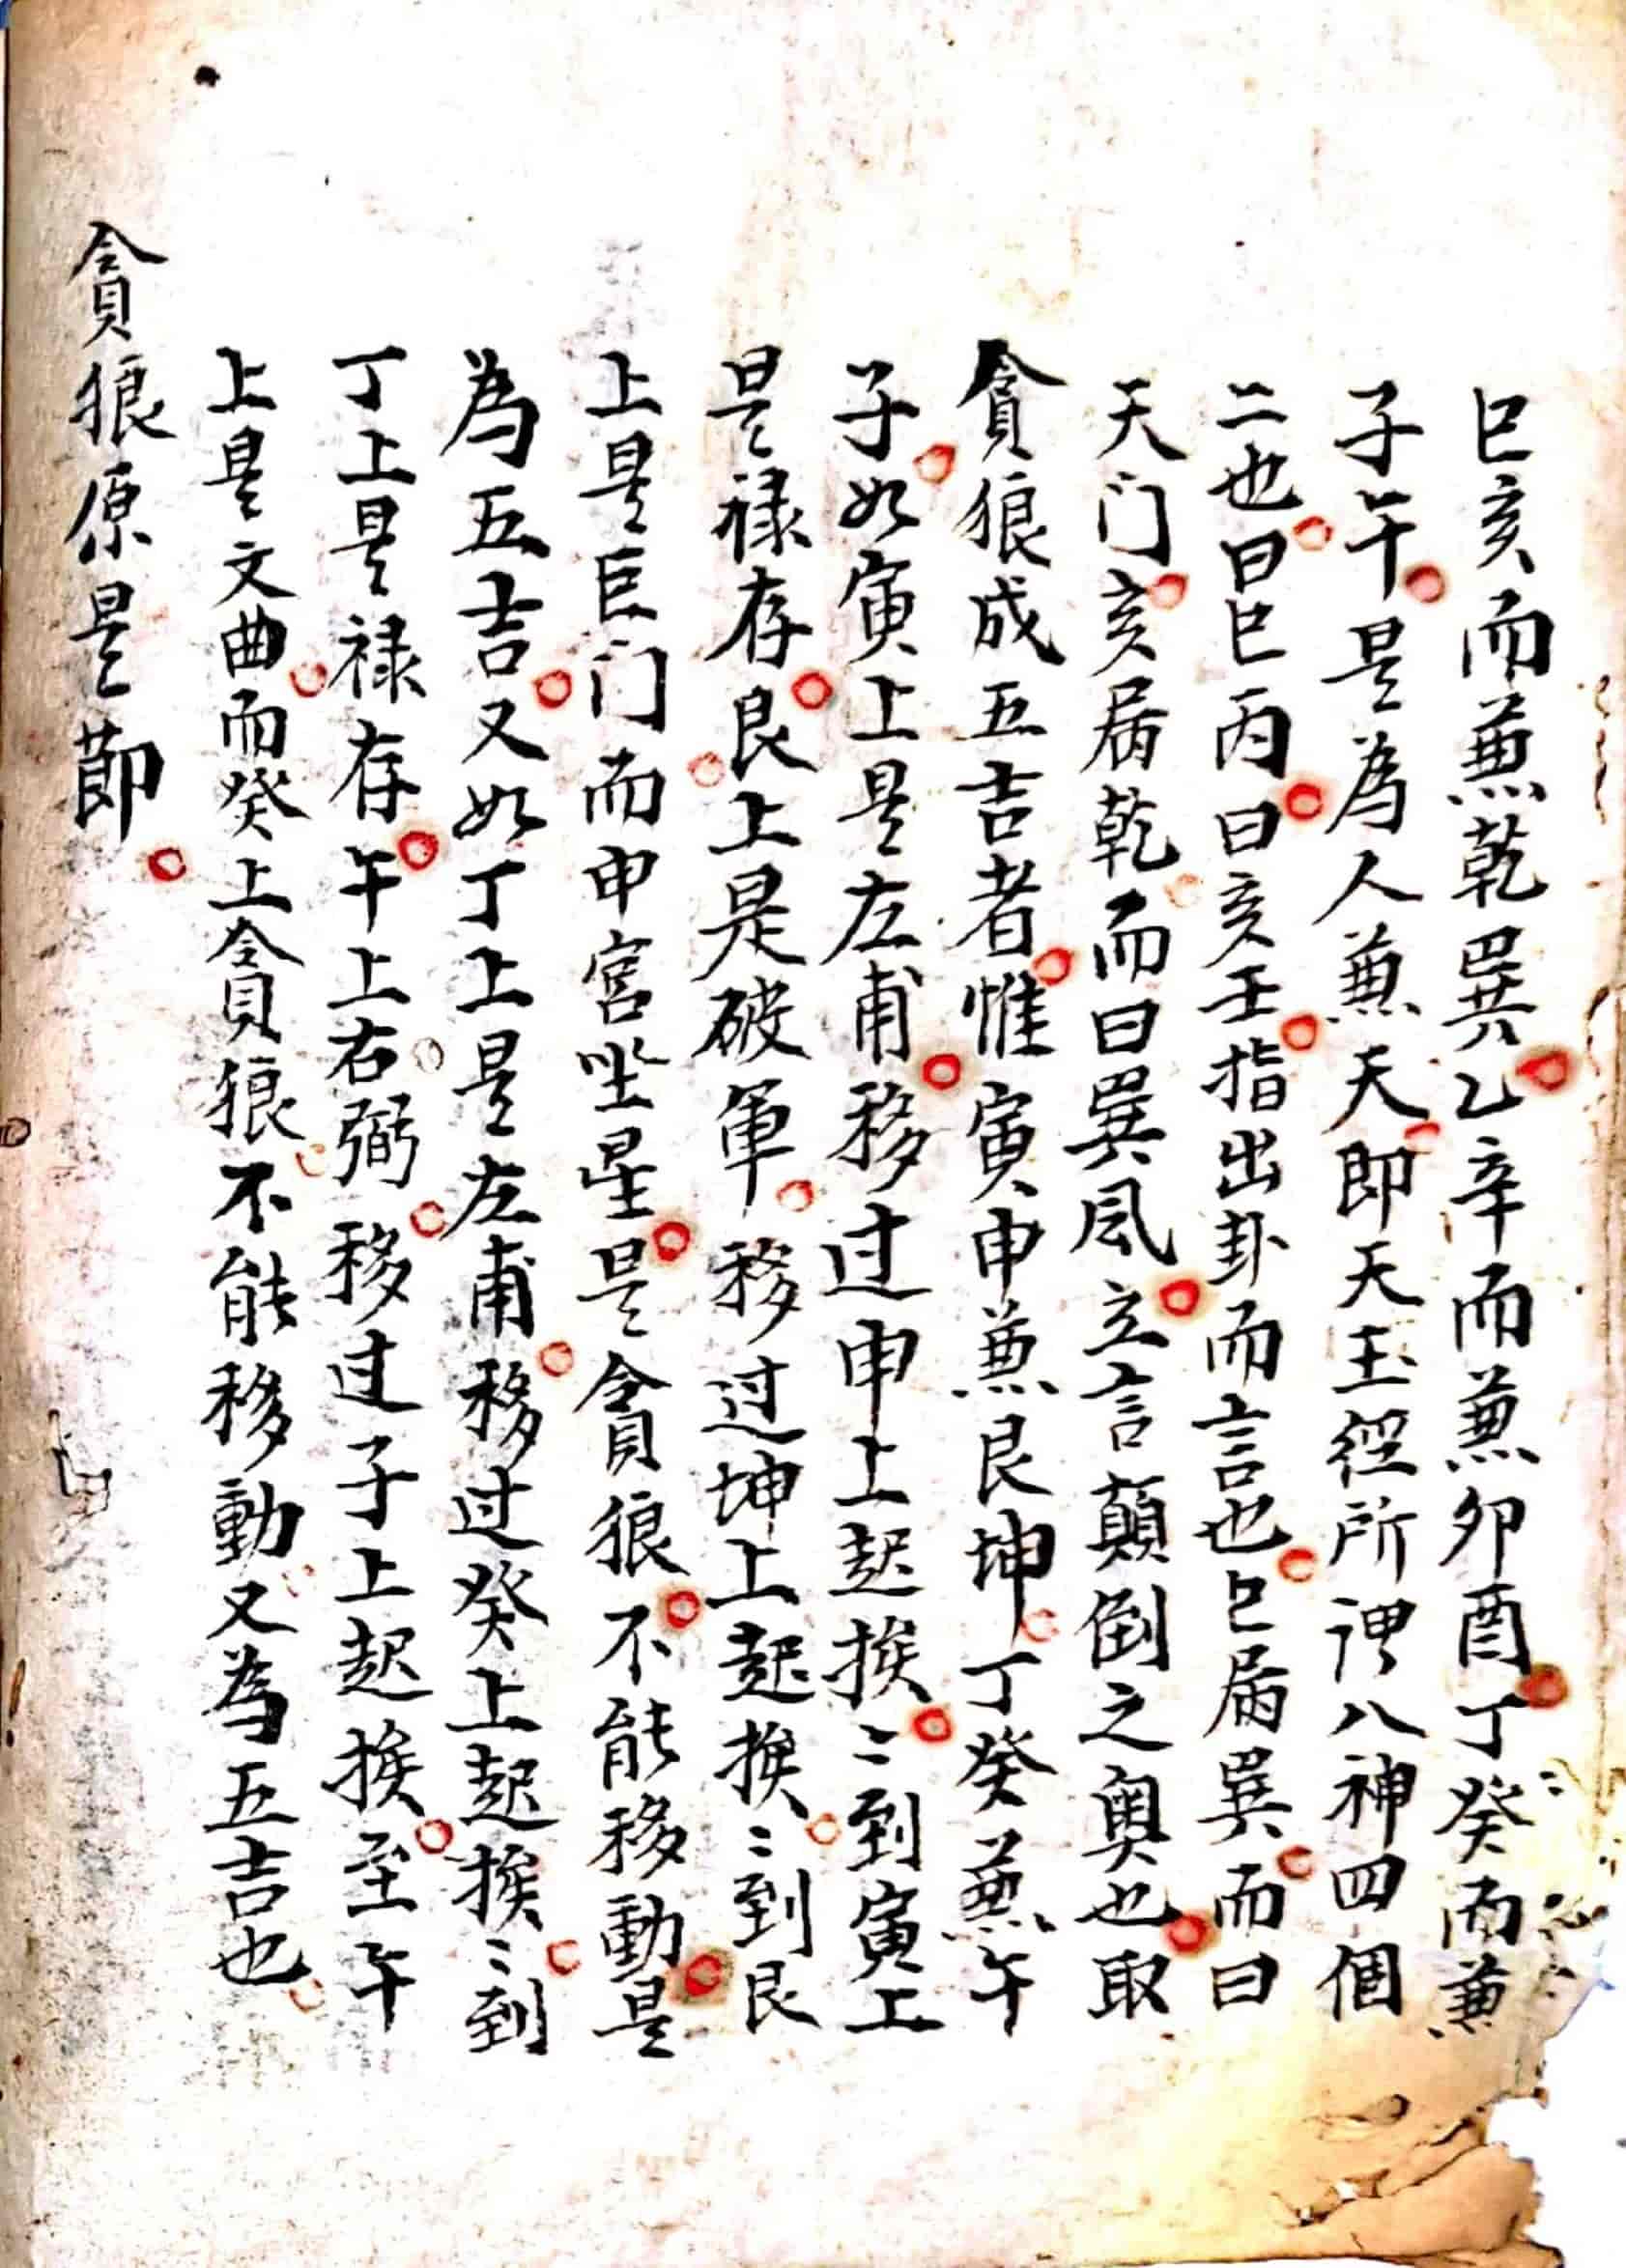 巳亥而兼乾巽乙辛而兼卯酉丁癸而兼
子午是為人兼天即天玉經所謂八神四個
二也曰巳丙曰亥壬指出卦而言也巳屬巽而曰
天门亥屬乾而曰巽風立言顛倒之奥也取
貪狼成五吉者惟寅申兼艮坤丁癸兼午
子如寅上是左甫移过申上起挨〻到寅上
是禄存艮上是破軍移过坤上起挨〻到艮
上是巨门而申宮坐星是貪狼不能移動是
為五吉又如丁上是左甫移过癸上起挨〻到
丁上是禄存午上右弼移过子上起挨至午
上是文曲而癸上貪狼不能移動又為五吉也
貪狼原是節